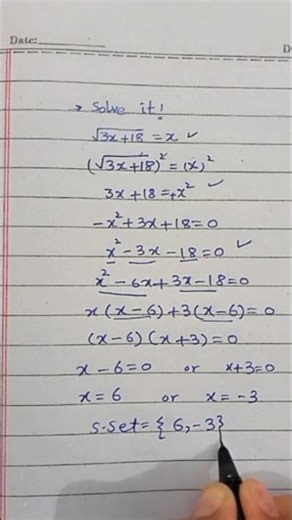 Date:
→ Solve it!
√3x+18 = x ✓
(√3x+18)² = (x)²
3x + 18 = +x² ✓
-x² + 3x + 18 = 0
x² - 3x - 18 = 0 ✓
x² - 6x + 3x - 18 = 0
x (x - 6) + 3(x - 6) = 0
(x - 6) (x + 3) = 0
x - 6 = 0 or x + 3 = 0
x = 6 or x = -3
S.Set = { 6, -3 }